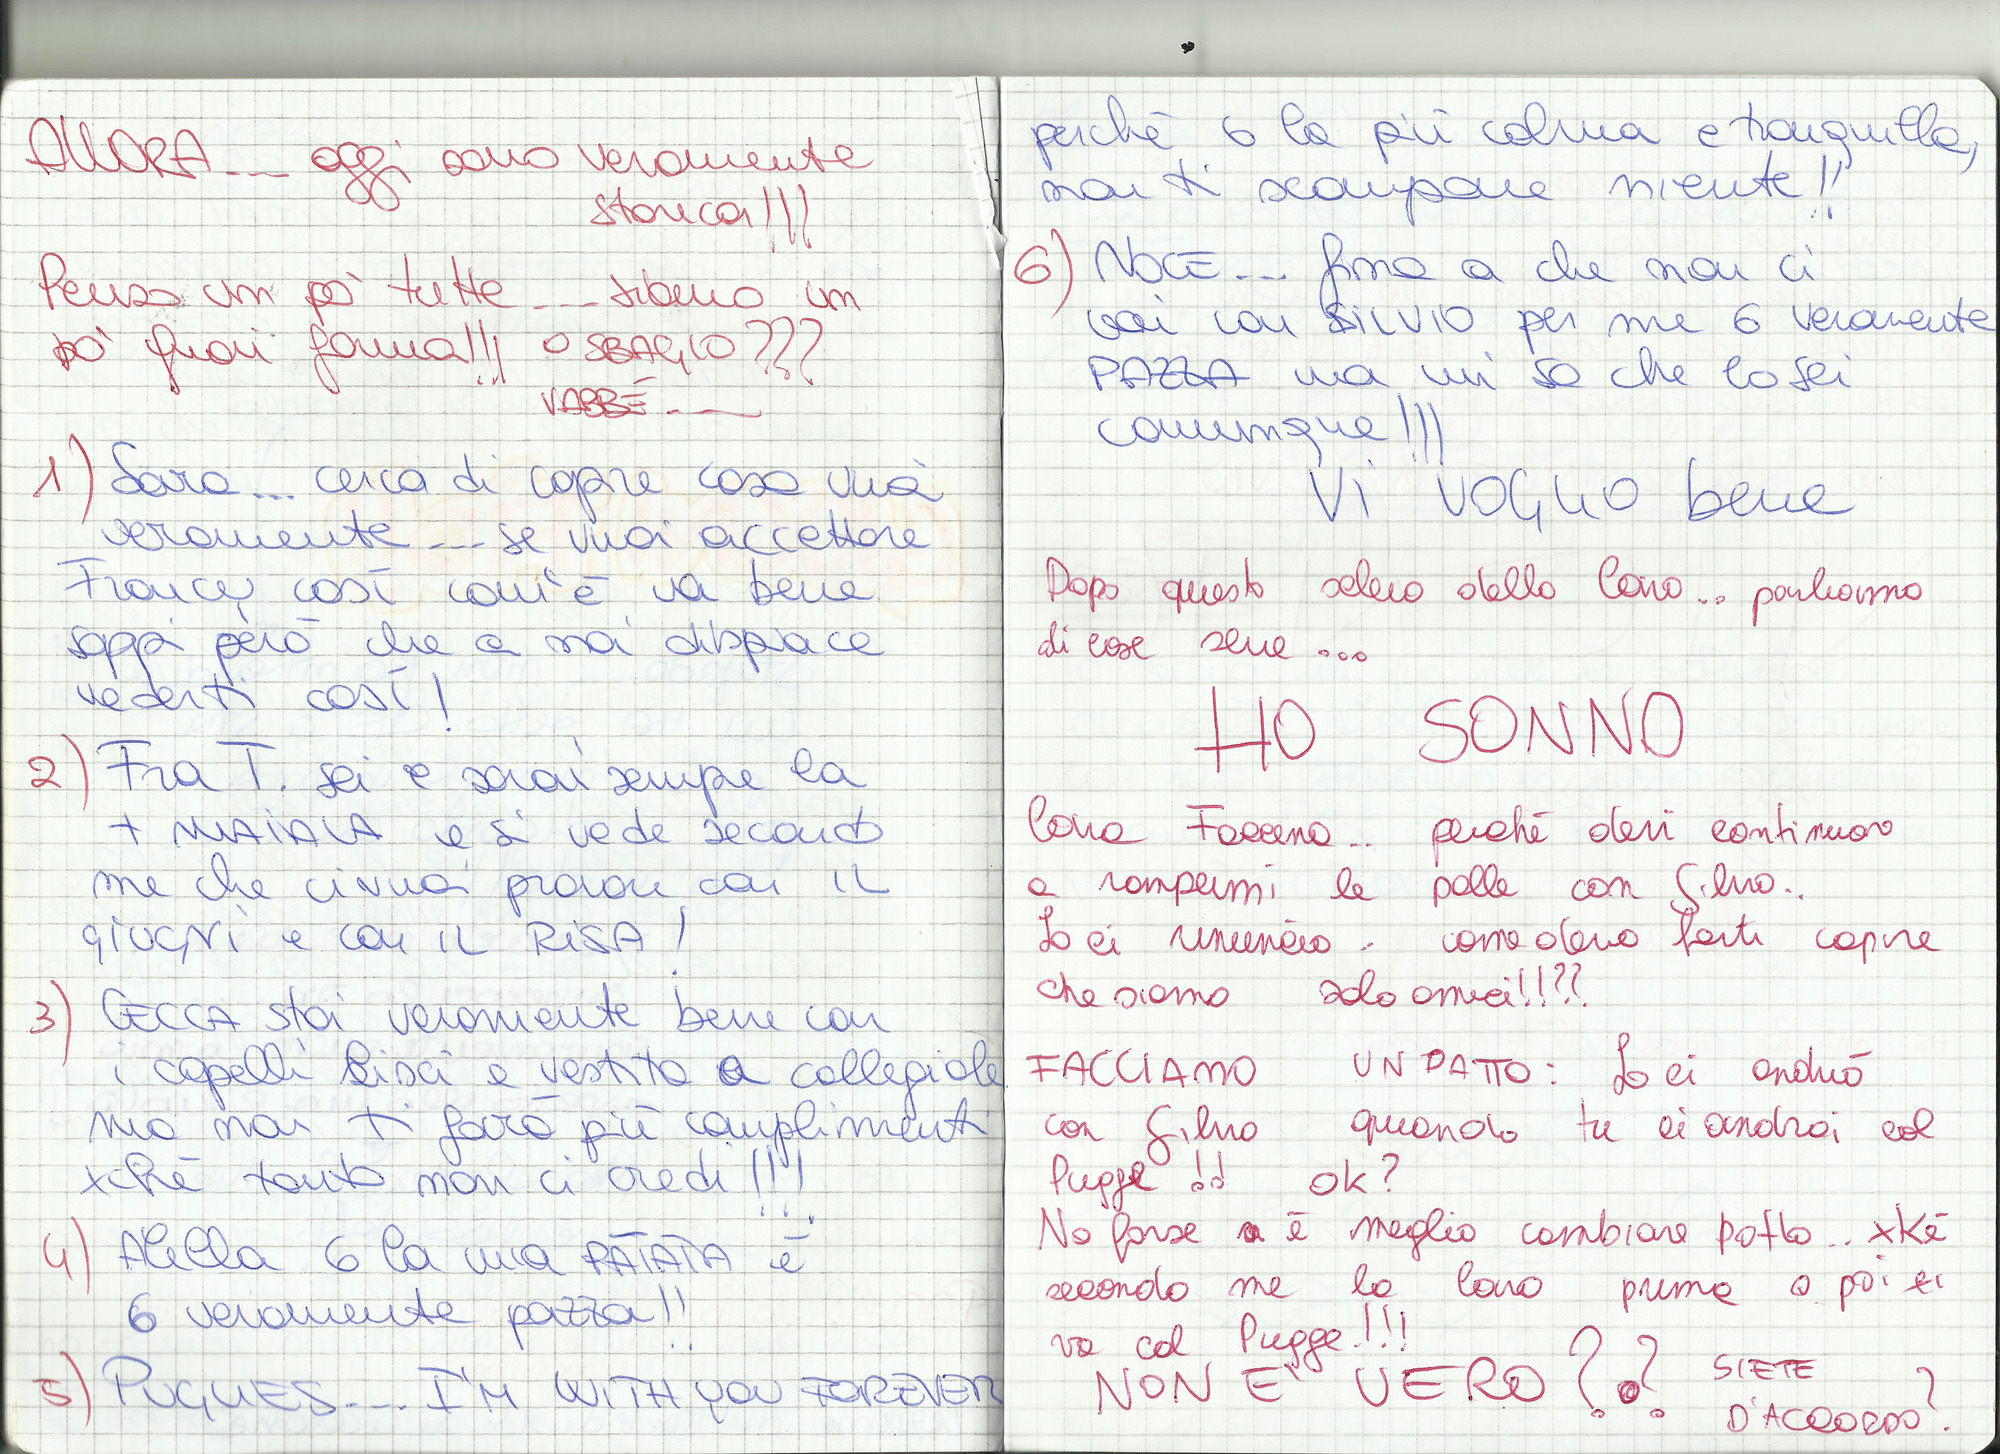 ALLORA... oggi sono veramente
storica!!!
Penso un pò tutte... siamo un
pò fuori forma!!! O SBAGLIO???
VABBÈ...
1) Sara... cerca di capire cosa vuoi
veramente... se vuoi accettare
Francy così com'è va bene
sappi però che a noi dispiace
vederti così!
2) Fra T. sei e sarai sempre la
+ MAIALA e si vede secondo
me che ci vuoi provare con IL
GIUGNI e con IL RISA!
3) CECCA stai veramente bene con
i capelli lisci e vestita a collegiale
ma non ti farò più complimenti
xchè tanto non ci credi!!!
4) Alilla 6 la mia PATATA e
6 veramente pazza!!
5) PUGUES.... I'M WITH YOU FOREVER
perché 6 la più calma e tranquilla,
non ti scompone niente!!
6) NOCE... fino a che non ci
vai con SILVIO per me 6 veramente
PAZZA ma mi sa che lo sei
comunque!!!
VI VOGLIO bene
Dopo questo sclero della Cara.. parliamo
di cose serie ...
HO SONNO
Cara.. perché devi continuare
a rompermi le palle con Silvio..
Io ci rinuncio.. come devo farti capire
che siamo solo amici!!??
FACCIAMO UN PATTO: Io ci andrò
con Silvio quando tu ci andrai col
Pugge!! OK?
No forse è meglio cambiare patto.. xKè
secondo me la Cara prima o poi ci
va col Pugge!!!
NON E' VERO?? SIETE
D'ACCORDO?